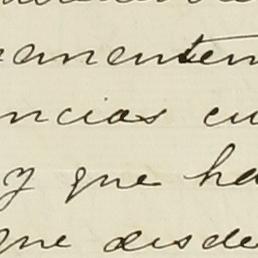 amenten
ncias cu
y que ha
que desde